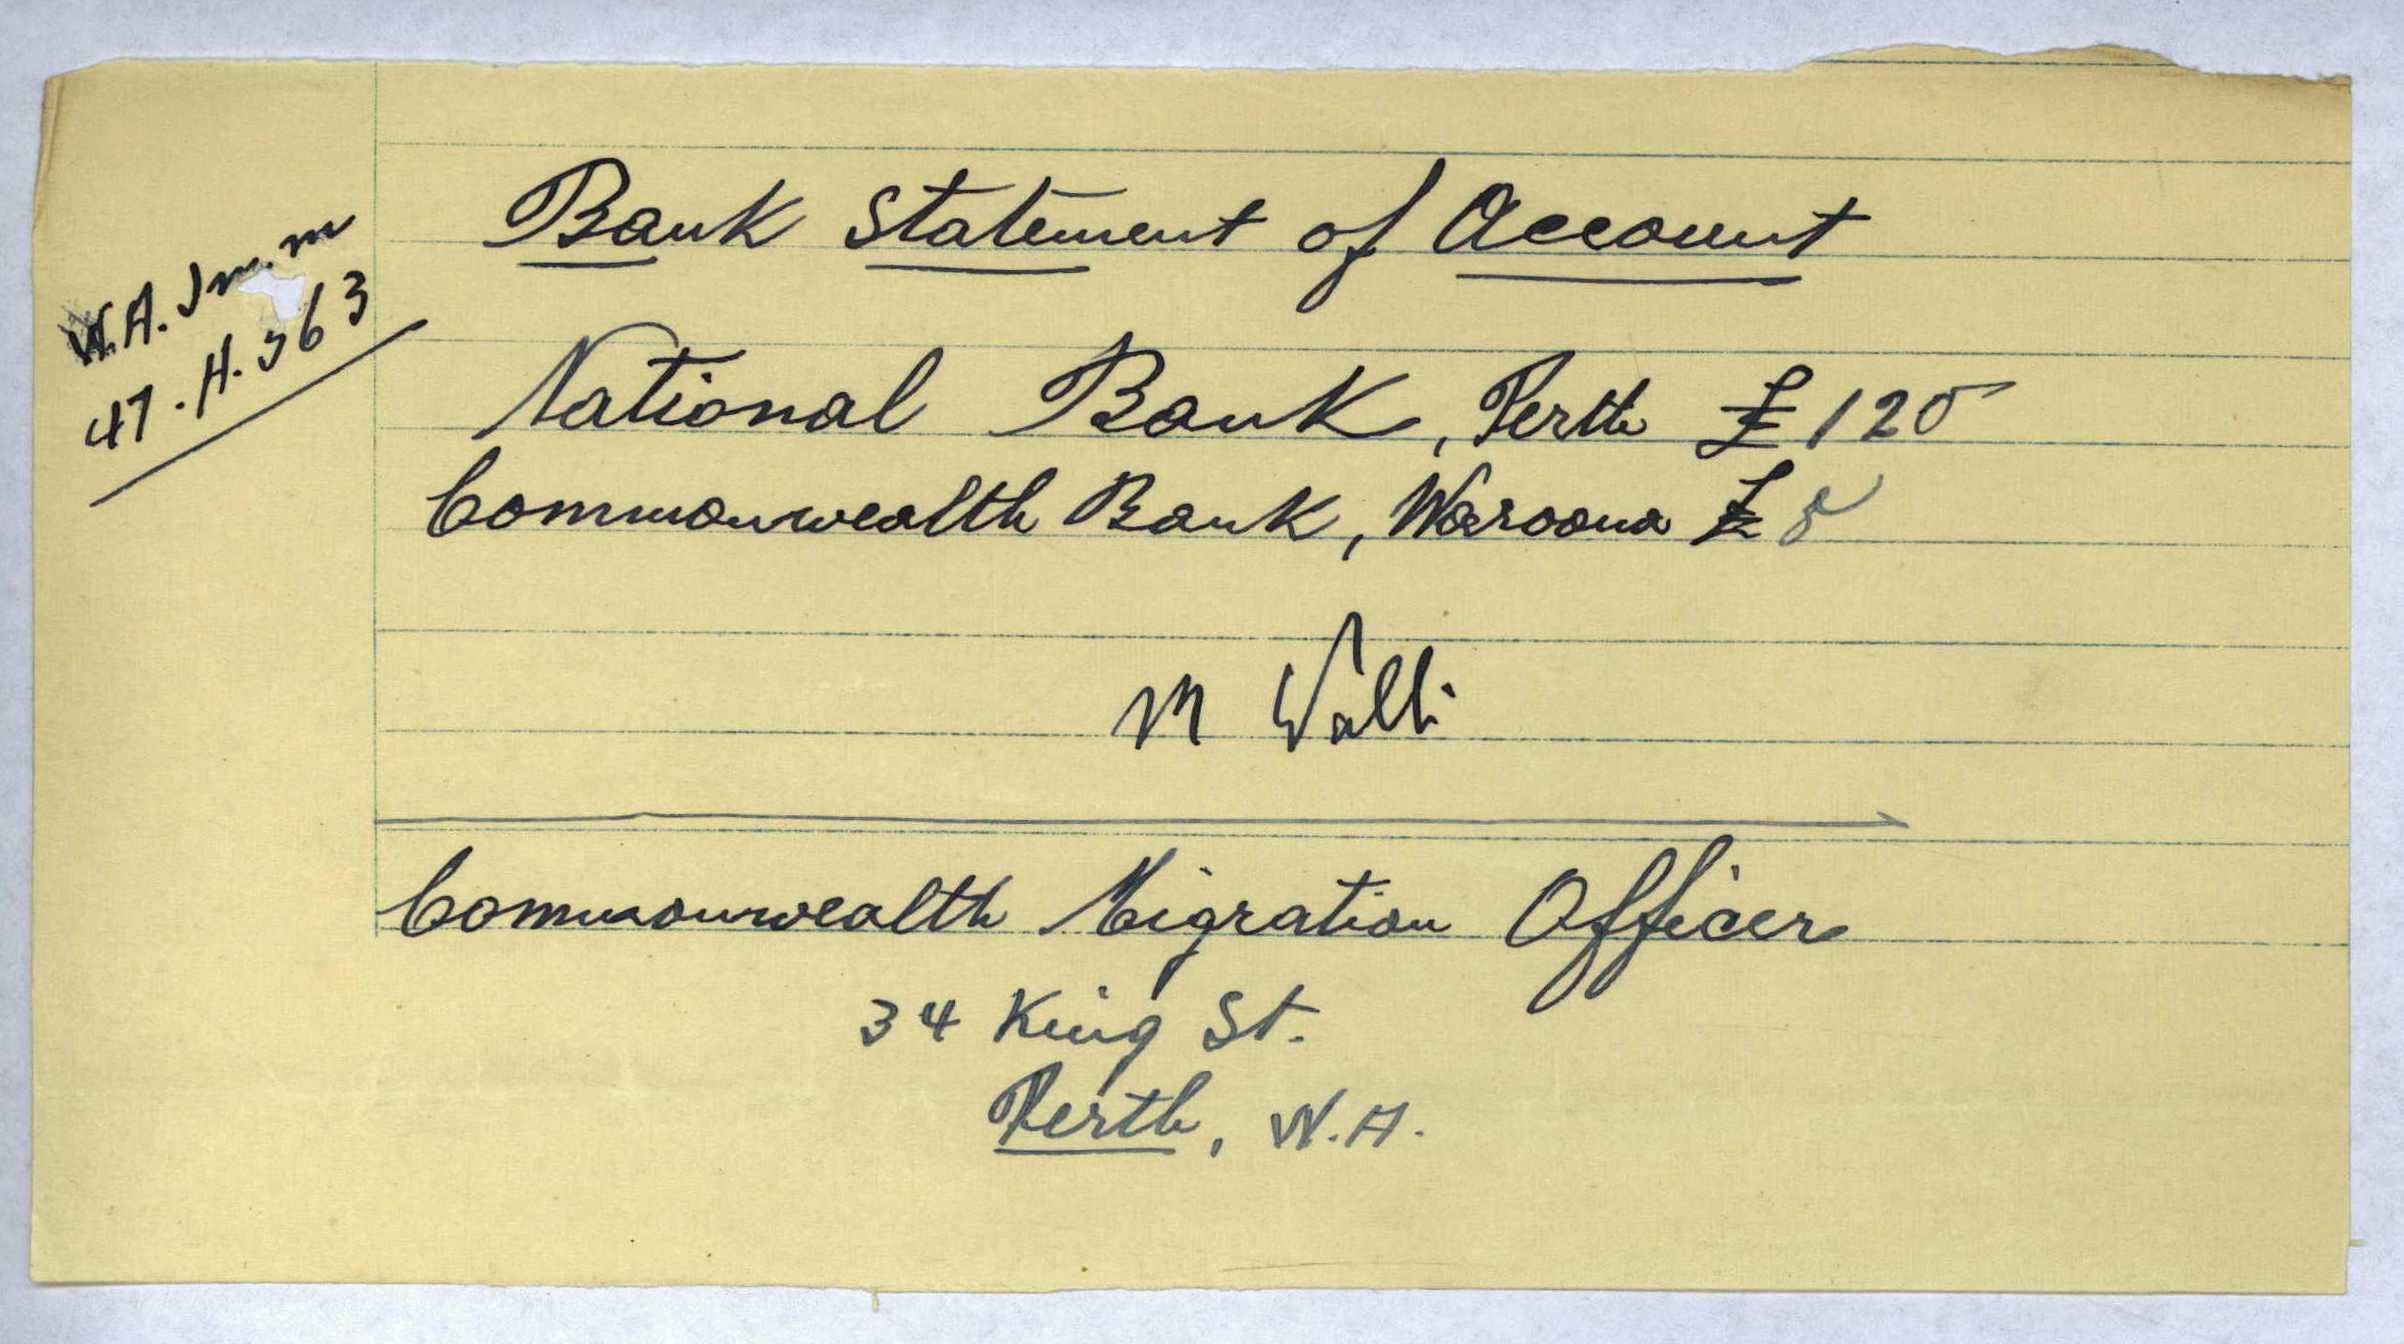 W.A. Imm.m
47.H.363
Bank Statement of Account
National Bank, Perth £120
Commonwealth Bank, Waroona £5
M Valli
Commonwealth Migration Officer
34 King St.
Perth, W.A.